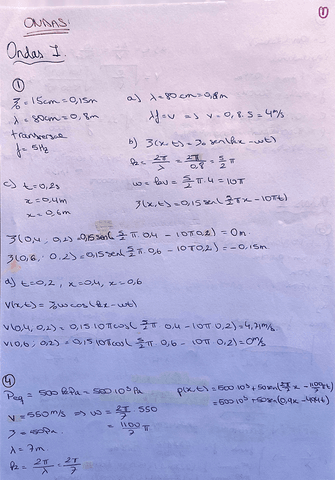 ONDAS:
1
Ondas I.
①
ξ₀ = 15cm = 0,15m
λ = 80cm = 0,8m
transversal
f = 5Hz
a) λ = 80cm = 0,8m
λf = v ⇒ v = 0,8·5 = 4m/s
b) ξ(x,t) = ξ₀ sen(kx - ωt)
k = 2π/λ = 2π/0,8 = 5/2 π
ω = kv = 5/2 π·4 = 10π
ξ(x,t) = 0,15 sen(5/2 π x - 10πt)
c) t = 0,2s
x = 0,4m
x = 0,6m
ξ(0,4, 0,2) = 0,15 sen(5/2 π 0,4 - 10π 0,2) = 0m
ξ(0,6, 0,2) = 0,15 sen(5/2 π 0,6 - 10π 0,2) = -0,15m
d) t = 0,2, x = 0,4, x = 0,6
v(x,t) = ξ₀ω cos(kx - ωt)
v(0,4, 0,2) = 0,15 10π cos(5/2 π 0,4 - 10π 0,2) = 4,71m/s
v(0,6, 0,2) = 0,15 10π cos(5/2 π 0,6 - 10π 0,2) = 0m/s
④
Peq = 500kPa = 500·10³Pa
v = 550m/s ⇒ ω = 2π/7 · 550
= 1100/7 π
= 50Pa
λ = 7m
k = 2π/λ = 2π/7
p(x,t) = 500·10³ + 50 sen(2π/7 x - 1100π/7 t)
= 500·10³ + 50 sen(0,9x - 494t)